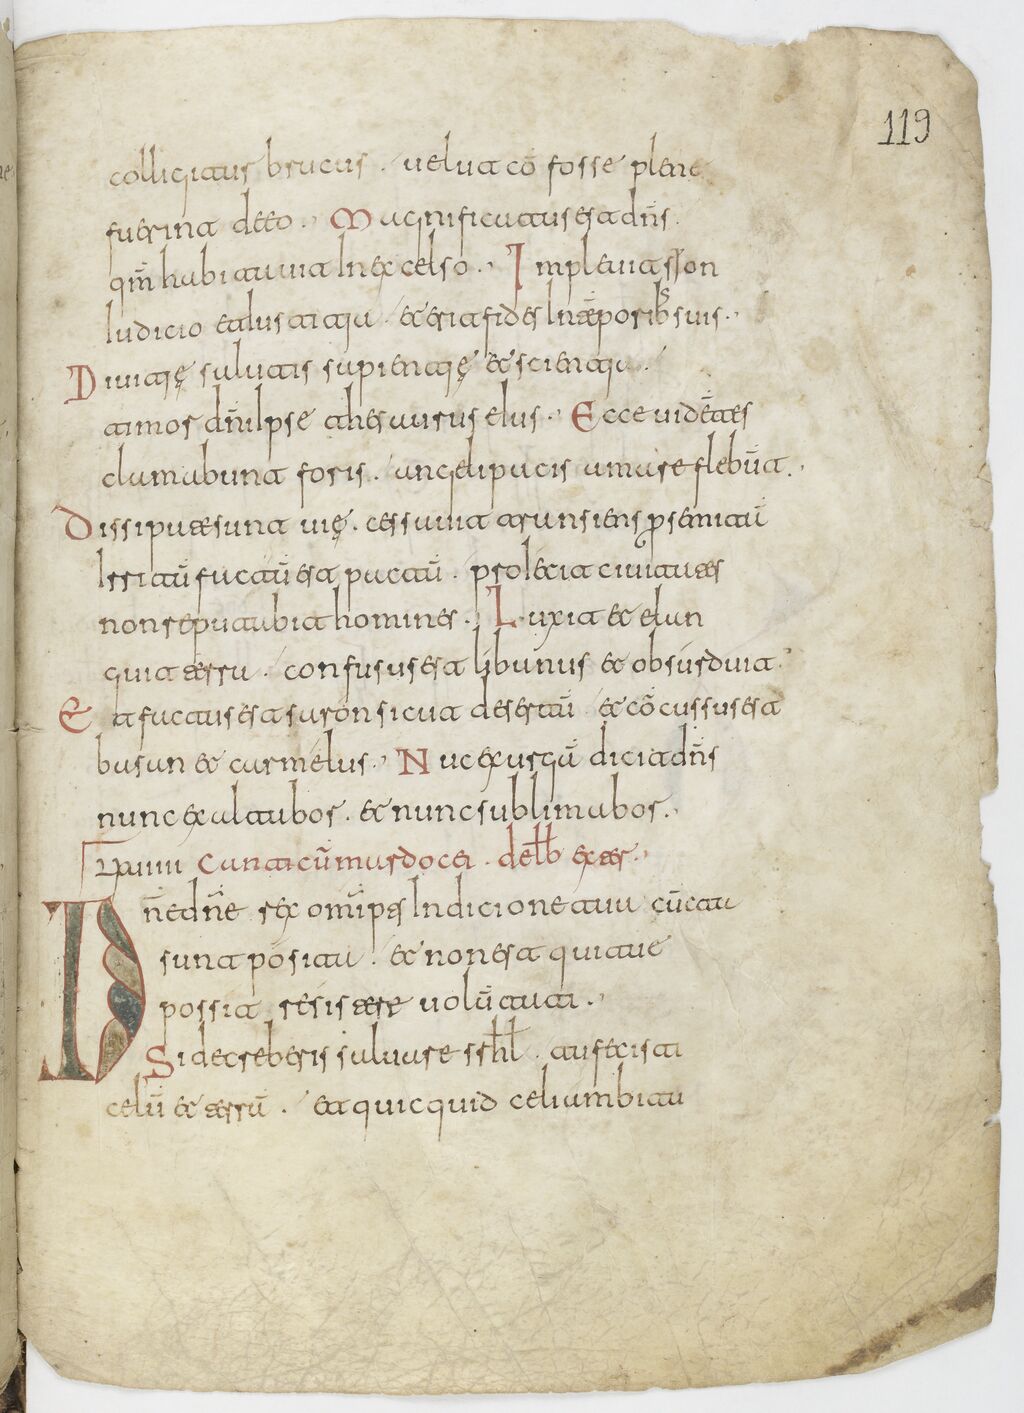 119
colligitur brucus . uelut cū fosse plene
fuerint deeo . Magnificatus est dn̄s
qm̄ habitauit In excelso . Impleuit sion
Iudicio et Iustitia . et erit fides In temporibs suis .
Diuitię salutis sapientię et scientia .
timor dn̄i Ipse thesaurus eIus . Ecce uidētes
clamabunt foris . angeli pacis amare flebūt .
Dissipate sunt uię . cessauit transiens p semitā
Irritū factū est pactū . proIecit ciuitates
non reputabit homines . Luxit et elan
guit terra . confusus est libanus et obsurduit
Et factus est saron sicut desertū et cōcussus est
basan et carmelus . Nūc exurgā dicit dn̄s
nunc exaltabor . et nunc sublimabor .
Canticū mardocei . de lib ester .
Dn̄e dn̄e rex omīps In dicione tua cūcta
sunt posita . et non est qui tue
possit resistere uolūtati .
Si decreberis saluare isrhl . tu fecisti
celū et terrā . et quicquid celi ambitu